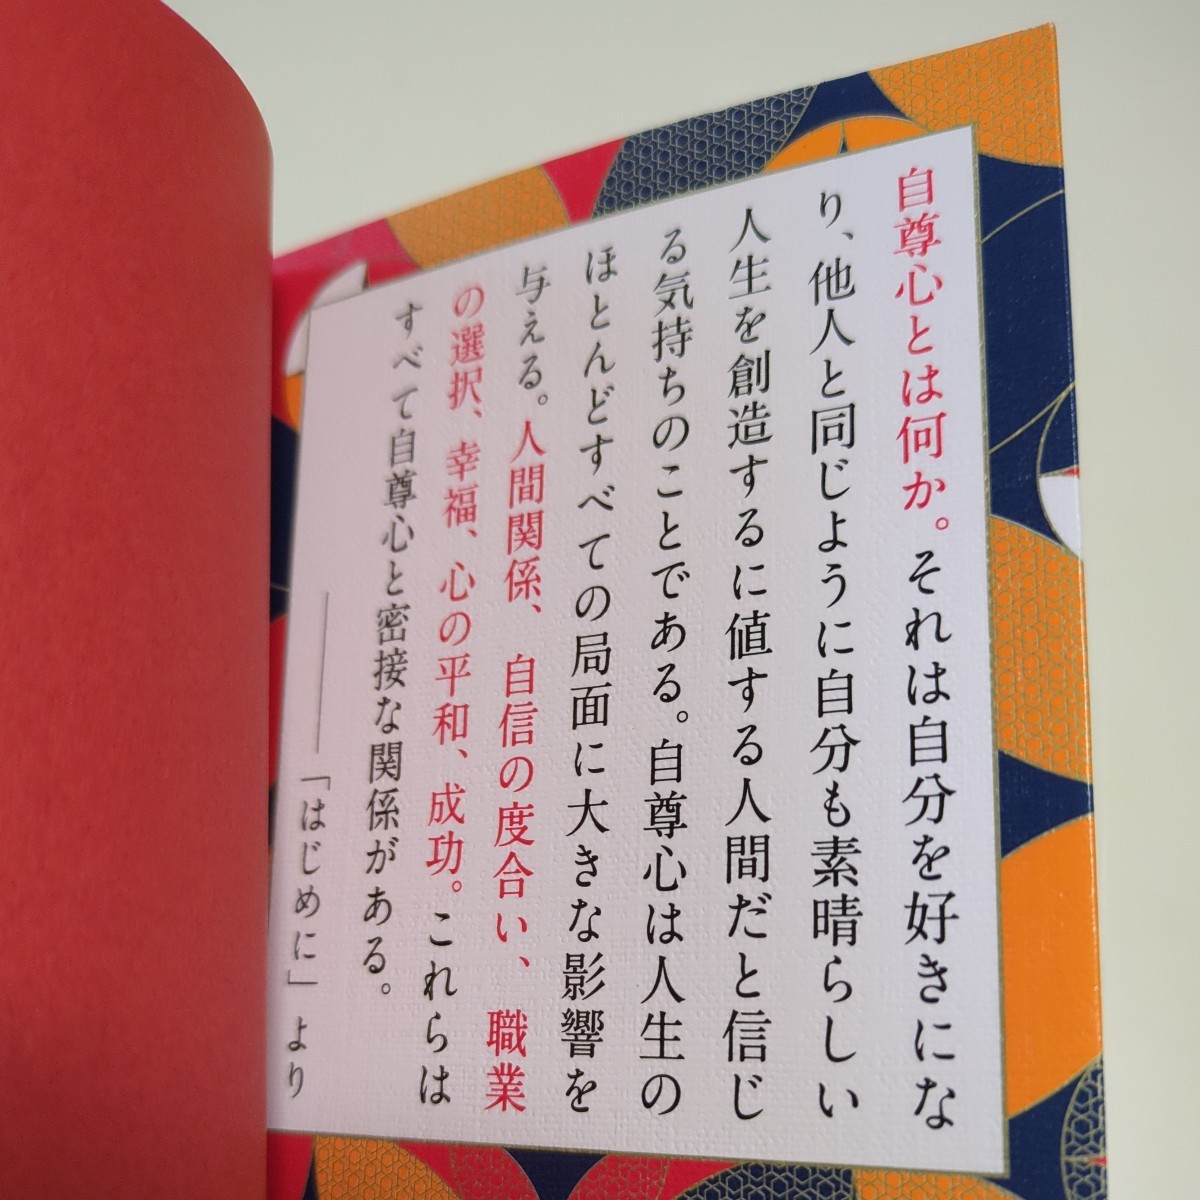 自尊心とは何か。それは自分を好きにな
り、他人と同じように自分も素晴らしい
人生を創造するに値する人間だと信じ
る気持ちのことである。自尊心は人生の
ほとんどすべての局面に大きな影響を
与える。人間関係、自信の度合い、職業
の選択、幸福、心の平和、成功。これらは
すべて自尊心と密接な関係がある。
――「はじめに」より